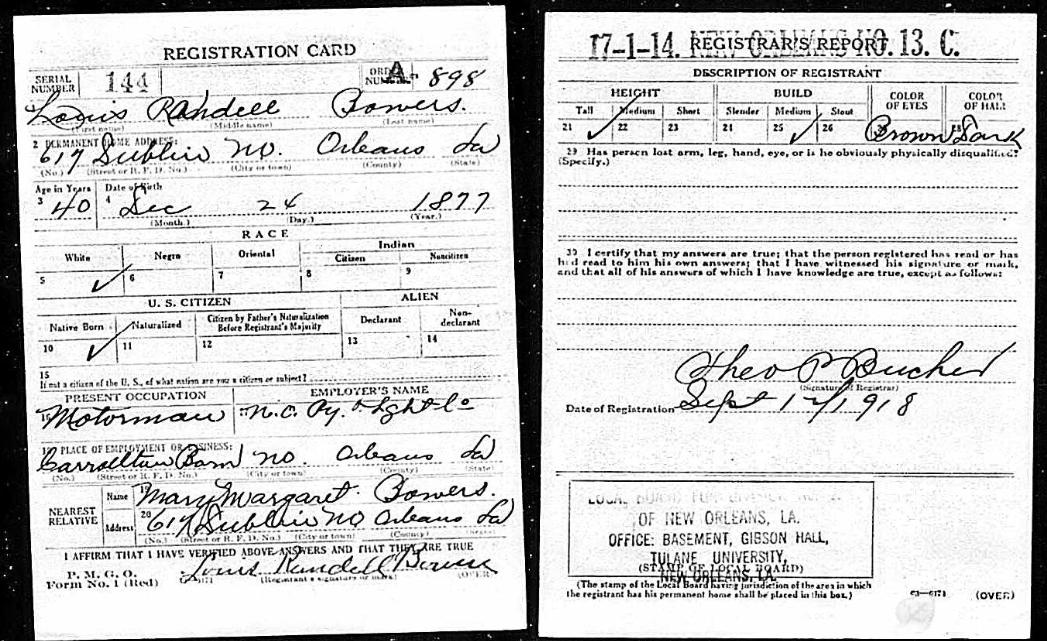 REGISTRATION CARD
SERIAL NUMBER 144 ORDER NUMBER A 898
Louis Randell Bowers.
(First name) (Middle name) (Last name)
2 PERMANENT HOME ADDRESS:
617 Dublin N.O. Orleans La
(No.) (Street or R. F. D. No.) (City or town) (County) (State)
Age in Years Date of Birth
3 40 4 Dec 24 1877
(Month.) (Day.) (Year.)
RACE
White Negro Oriental Indian
Citizen Noncitizen
5 ✓ 6 7 8 9
U. S. CITIZEN ALIEN
Native Born Naturalized Citizen by Father's Naturalization Before Registrant's Majority Declarant Non-declarant
10 ✓ 11 12 13 14
15
If not a citizen of the U. S., of what nation are you a citizen or subject?
PRESENT OCCUPATION EMPLOYER'S NAME
16 Motorman 17 N.O. Ry. & Lght Co
18 PLACE OF EMPLOYMENT OR BUSINESS:
Carrollton Barn N.O. Orleans La
(No.) (Street or R. F. D. No.) (City or town) (County) (State)
NEAREST RELATIVE
Name 19 Mary Margaret Bowers.
Address 20 617 Dublin N.O. Orleans La
(No.) (Street or R. F. D. No.) (City or town) (County) (State)
I AFFIRM THAT I HAVE VERIFIED ABOVE ANSWERS AND THAT THEY ARE TRUE
P. M. G. O.
Form No. 1 (Red) Louis Randell Bowers
(Registrant's signature or mark) (OVER)
17-1-14. NEW ORLEANS NO. 13. C.
REGISTRAR'S REPORT
DESCRIPTION OF REGISTRANT
HEIGHT BUILD COLOR OF EYES COLOR OF HAIR
Tall Medium Short Slender Medium Stout
21 ✓ 22 23 24 25 ✓ 26 Brown Dark
29 Has person lost arm, leg, hand, eye, or is he obviously physically disqualified?
(Specify.)
30 I certify that my answers are true; that the person registered has read or has
had read to him his own answers; that I have witnessed his signature or mark,
and that all of his answers of which I have knowledge are true, except as follows:
Theo P Bucher
(Signature of Registrar)
Date of Registration Sept 12/1918
LOCAL BOARD FOR DIVISION NO.
OF NEW ORLEANS, LA.
OFFICE: BASEMENT, GIBSON HALL,
TULANE UNIVERSITY,
(STAMP OF LOCAL BOARD)
NEW ORLEANS, LA.
(The stamp of the Local Board having jurisdiction of the area in which
the registrant has his permanent home shall be placed in this box.)
63—6171 (OVER)